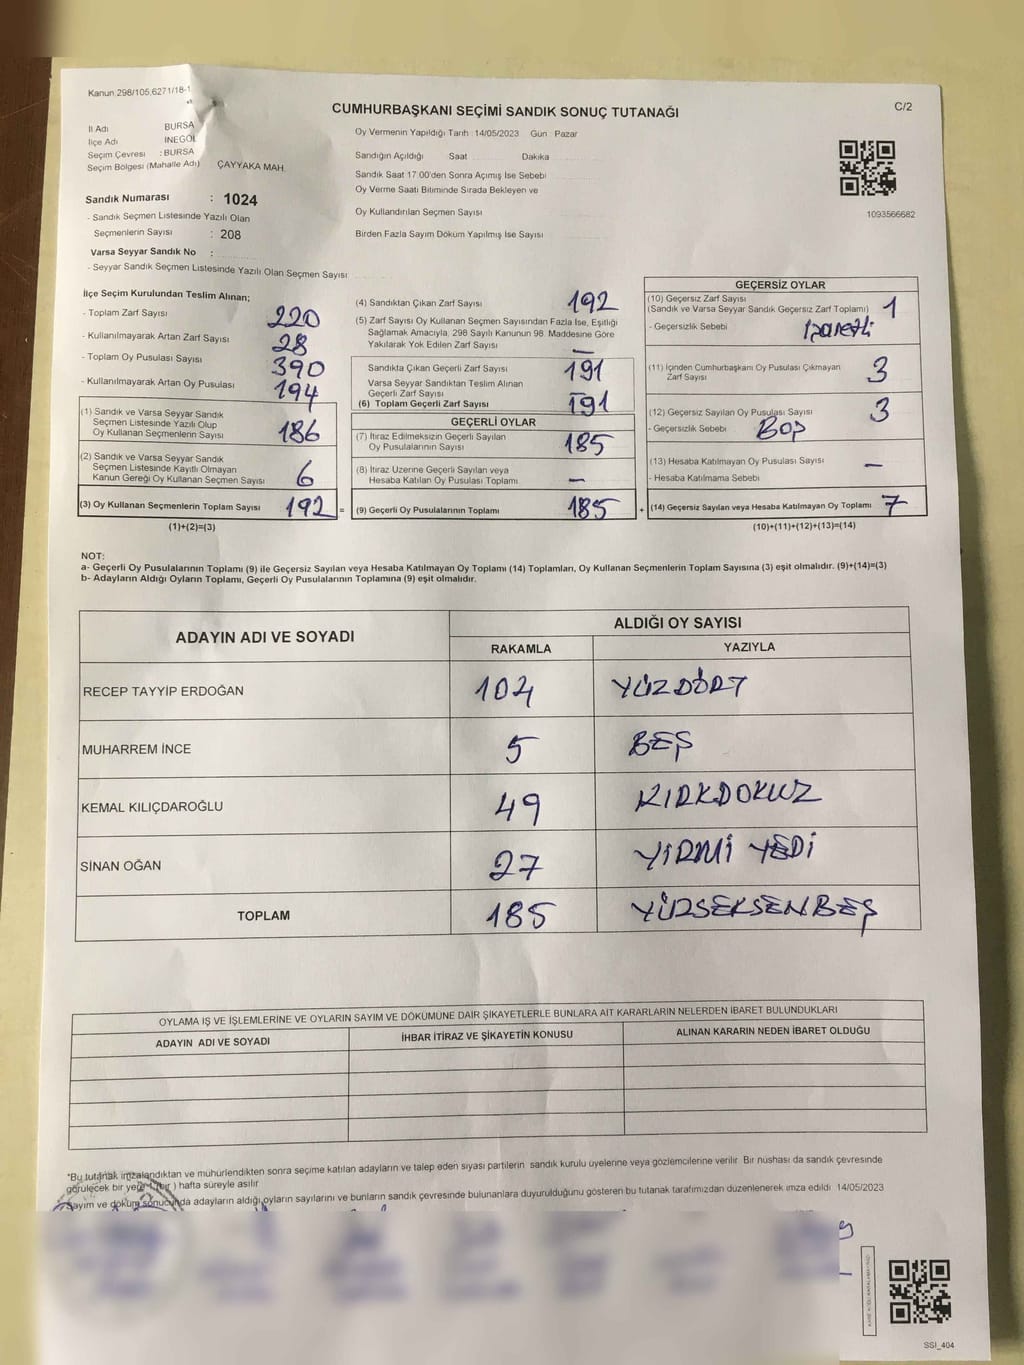 Kanun.298/105,6271/18-1
CUMHURBAŞKANI SEÇİMİ SANDIK SONUÇ TUTANAĞI
C/2
İl Adı BURSA
İlçe Adı İNEGÖL
Seçim Çevresi : BURSA
Seçim Bölgesi (Mahalle Adı) ÇAYYAKA MAH.
Sandık Numarası : 1024
- Sandık Seçmen Listesinde Yazılı Olan
Seçmenlerin Sayısı : 208
Varsa Seyyar Sandık No :
- Seyyar Sandık Seçmen Listesinde Yazılı Olan Seçmen Sayısı
Oy Vermenin Yapıldığı Tarih : 14/05/2023 Gün : Pazar
Sandığın Açıldığı Saat Dakika
Sandık Saat 17:00'den Sonra Açımış İse Sebebi
Oy Verme Saati Bitiminde Sırada Bekleyen ve
Oy Kullandırılan Seçmen Sayısı
Birden Fazla Sayım Döküm Yapılmış İse Sayısı
1093566682
İlçe Seçim Kurulundan Teslim Alınan;
- Toplam Zarf Sayısı 220
- Kullanılmayarak Artan Zarf Sayısı 28
- Toplam Oy Pusulası Sayısı 390
- Kullanılmayarak Artan Oy Pusulası 194
(1) Sandık ve Varsa Seyyar Sandık
Seçmen Listesinde Yazılı Olup
Oy Kullanan Seçmenlerin Sayısı 186
(2) Sandık ve Varsa Seyyar Sandık
Seçmen Listesinde Kayıtlı Olmayan
Kanun Gereği Oy Kullanan Seçmen Sayısı 6
(3) Oy Kullanan Seçmenlerin Toplam Sayısı 192 =
(1)+(2)=(3)
(4) Sandıktan Çıkan Zarf Sayısı 192
(5) Zarf Sayısı Oy Kullanan Seçmen Sayısından Fazla İse, Eşitliği
Sağlamak Amacıyla, 298 Sayılı Kanunun 98. Maddesine Göre
Yakılarak Yok Edilen Zarf Sayısı —
Sandıkta Çıkan Geçerli Zarf Sayısı 191
Varsa Seyyar Sandıktan Teslim Alınan
Geçerli Zarf Sayısı —
(6) Toplam Geçerli Zarf Sayısı 191
GEÇERLİ OYLAR
(7) İtiraz Edilmeksizin Geçerli Sayılan
Oy Pusulalarının Sayısı 185
(8) İtiraz Üzerine Geçerli Sayılan veya
Hesaba Katılan Oy Pusulası Toplamı —
(9) Geçerli Oy Pusulalarının Toplamı 185 +
GEÇERSİZ OYLAR
(10) Geçersiz Zarf Sayısı
(Sandık ve Varsa Seyyar Sandık Geçersiz Zarf Toplamı) 1
- Geçersizlik Sebebi İşaretli
(11) İçinden Cumhurbaşkanı Oy Pusulası Çıkmayan
Zarf Sayısı 3
(12) Geçersiz Sayılan Oy Pusulası Sayısı 3
- Geçersizlik Sebebi BOŞ
(13) Hesaba Katılmayan Oy Pusulası Sayısı —
- Hesaba Katılmama Sebebi
(14) Geçersiz Sayılan veya Hesaba Katılmayan Oy Toplamı 7
(10)+(11)+(12)+(13)=(14)
NOT:
a- Geçerli Oy Pusulalarının Toplamı (9) ile Geçersiz Sayılan veya Hesaba Katılmayan Oy Toplamı (14) Toplamları, Oy Kullanan Seçmenlerin Toplam Sayısına (3) eşit olmalıdır. (9)+(14)=(3)
b- Adayların Aldığı Oyların Toplamı, Geçerli Oy Pusulalarının Toplamına (9) eşit olmalıdır.
ADAYIN ADI VE SOYADI ALDIĞI OY SAYISI
RAKAMLA YAZIYLA
RECEP TAYYİP ERDOĞAN 104 YÜZDÖRT
MUHARREM İNCE 5 BEŞ
KEMAL KILIÇDAROĞLU 49 KIRKDOKUZ
SİNAN OĞAN 27 YİRMİ YEDİ
TOPLAM 185 YÜZSEKSENBEŞ
OYLAMA İŞ VE İŞLEMLERİNE VE OYLARIN SAYIM VE DÖKÜMÜNE DAİR ŞİKAYETLERLE BUNLARA AİT KARARLARIN NELERDEN İBARET BULUNDUKLARI
ADAYIN ADI VE SOYADI İHBAR İTİRAZ VE ŞİKAYETİN KONUSU ALINAN KARARIN NEDEN İBARET OLDUĞU
*Bu tutanak imzalandıktan ve mühürlendikten sonra seçime katılan adayların ve talep eden siyasi partilerin sandık kurulu üyelerine veya gözlemcilerine verilir. Bir nüshası da sandık çevresinde
görülecek bir yere 1 (bir ) hafta süreyle asılır.
Sayım ve döküm sonucunda adayların aldığı oyların sayılarını ve bunların sandık çevresinde bulunanlara duyurulduğunu gösteren bu tutanak tarafımızdan düzenlenerek imza edildi. 14/05/2023
SSİ_404